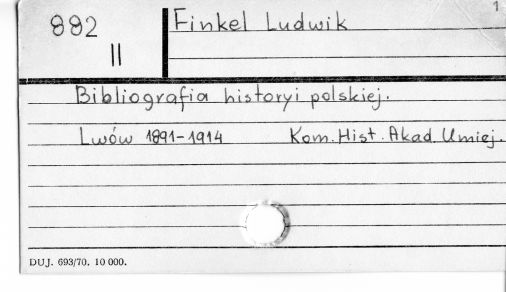 1
882
II
Finkel Ludwik
Bibliografia historyi polskiej.
Lwów 1891-1914 Kom. Hist. Akad. Umiej.
DUJ. 693/70. 10 000.